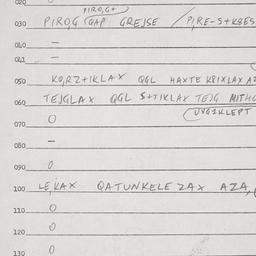 020
PIROG+
030 PIROG GAP GREJSE / PIRE-S+KBES
040 —
041 —
050 KO,RZ+IKLAX QGL HAXTE KRIXLAX AZ
060 TEJGLAX QGL S+TIKLAX TEJG MITHO
UVGIKLEPT
070 O
080 —
090 O
100 LE,KAX QATUNKELE ZAX AZA,
110 O
120 O
130 O